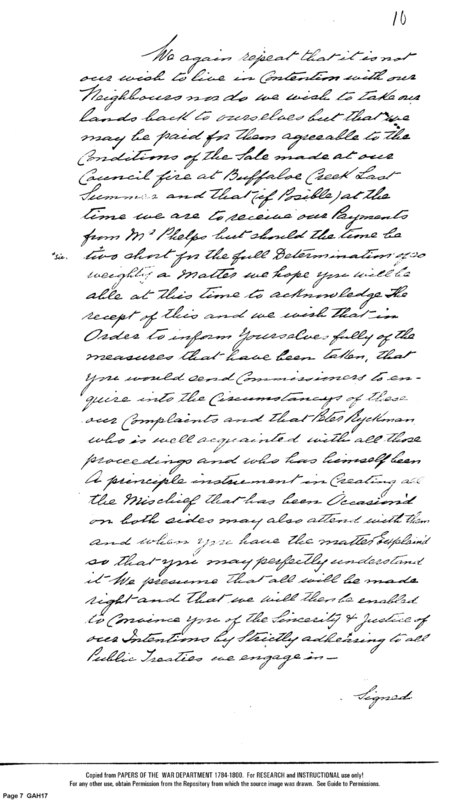 10
We again repeat that it is not
our wish to live in Contention with our
Neighbours nor do we wish to take our
lands back to ourselves but that we
may be paid for them agreeable to the
Conditions of the Sale made at our
Council fire at Buffaloe Creek Last
Summer and that (if Posible) at the
time we are to receive our Payments
from Mr Phelps but should the time be
"sic. two short for the full Determination of so
weighty a Matter we hope you will be
able at this time to acknowledge the
recept of this and we wish that in
Order to inform Yourselves fully of the
measures that have been taken, that
you would send Commissioners to en-
quire into the Circumstances of these
our Complaints and that Peter Ryckman
who is well acquainted with all those
proceedings and who has himself been
A principle instrument in Creating all
the Mischief that has been Occasiond
on both sides may also attend with them
and when you have the matter Explaind
so that you may perfectly understand
it We presume that all will be made
right and that we will then be enabled
to Convince you of the Sincerity & Justice of
our Intentions by Strictly adheering to all
Public Treaties we engage in—
Signed
Copied from PAPERS OF THE WAR DEPARTMENT 1784-1800. For RESEARCH and INSTRUCTIONAL use only!
For any other use, obtain Permission from the Repository from which the source image was drawn. See Guide to Permissions.
Page 7 GAH17